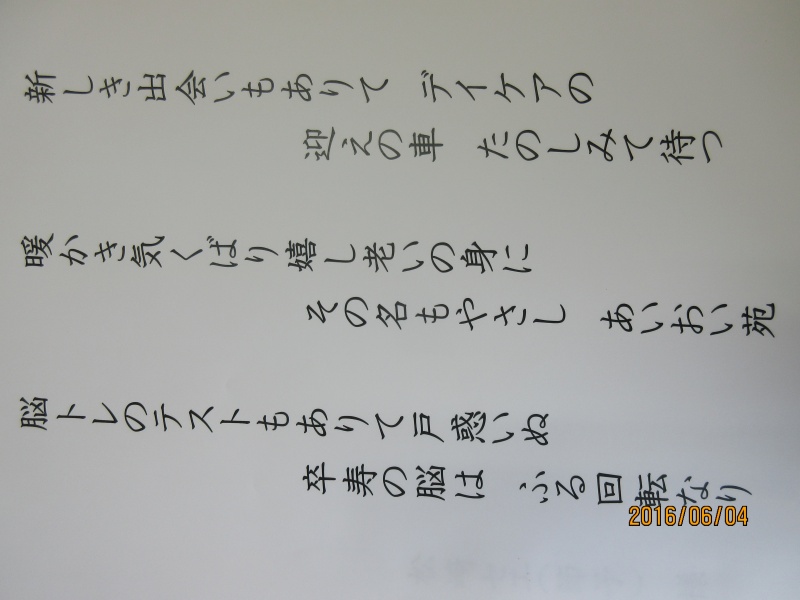 新しき出会いもありて　デイケアの
迎えの車　たのしみて待つ
暖かき気くばり嬉し老いの身に
その名もやさし　あいおい苑
脳トレのテストもありて戸惑いぬ
卒寿の脳は　ふる回転なり
2016/06/04